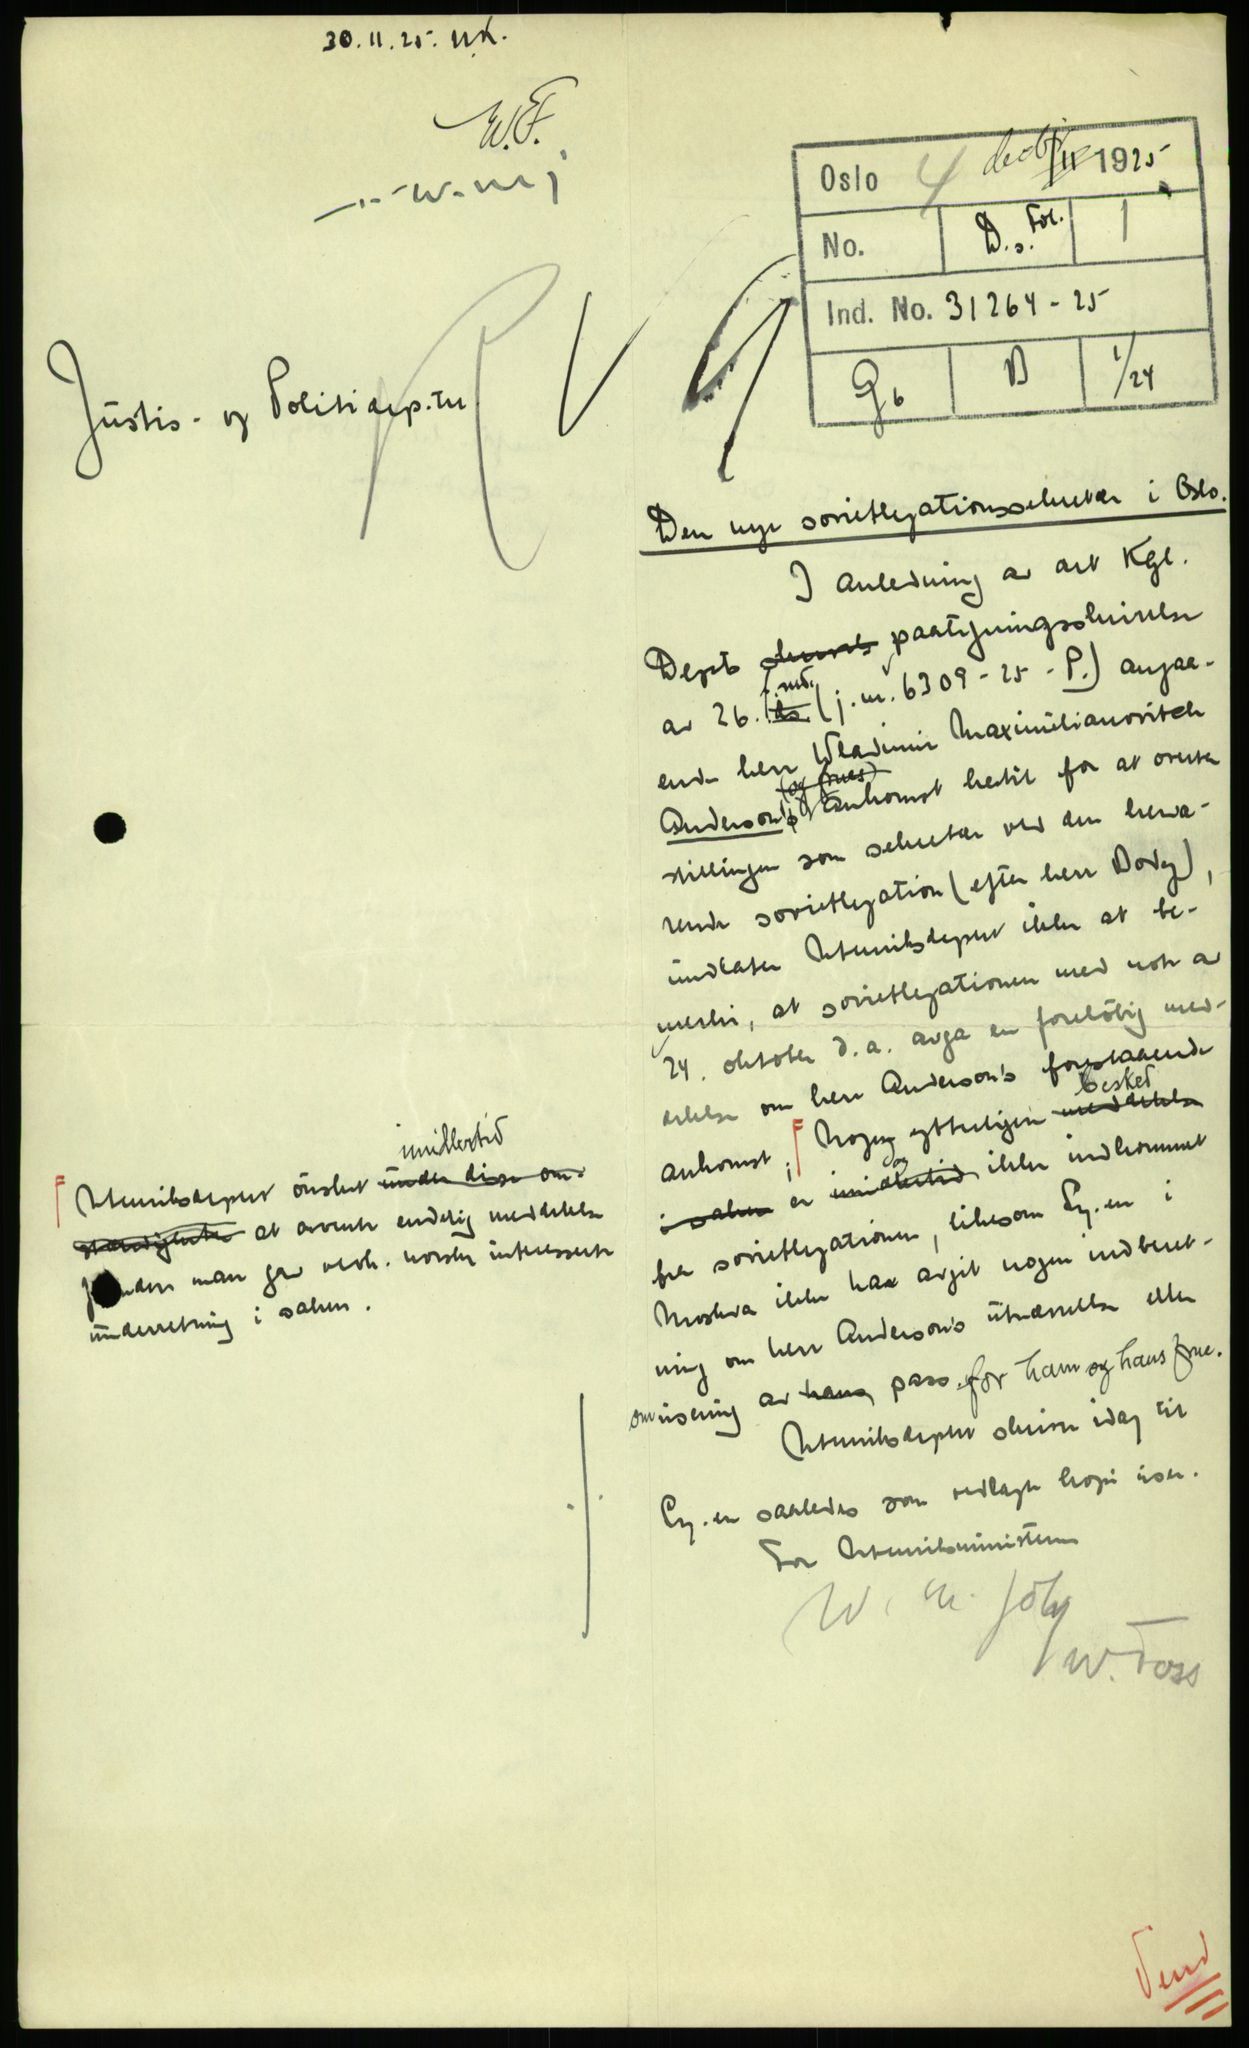 30.11.25. U.K.
W.F.
Oslo 4 decbr 1925
No. D.s. Fol. 1
Ind. No. 31264-25
G6 D 1/24
Justis- og Politidep.tet
Den nye sovietlegationssekretær i Oslo.
I anledning av det Kgl.
Depts skrivels paategningsskrivelse
av 26. ds. f. md. (j. nr. 6309-25-P.) angaa-
ende herr Wladimir Maximilianovitch
Anderson's (og frues) ankomst hertil for at overta
stillingen som sekretær ved den herva-
rende sovietlegation (efter herr Dody),
undlater Utenriksdeptet ikke at be-
merke, at sovietlegationen med note av
24. oktober d.a. avga en foreløbig med-
delelse om herr Anderson's forestaaende
ankomst; F Nogen ytterligere meddelelse besked
i saken er imidlertid og ikke indkommet
fra sovietlegationen, likesom Lg.en i
Moskva ikke har avgit nogen indberet-
ning om herr Anderson's utnævnelse eller
om visering av hans pass for ham og hans frue.
Utenriksdeptet skriver idag til
Lg.en saaledes som vedlagte kopi viser.
For Utenriksministeren
W. Foss
F Utenriksdeptet ønsket under disse om-
stændigheter imidlertid at avvente endelig meddelelse
førenn man gav vedk. norske interesserte
underretning i saken.
Vend